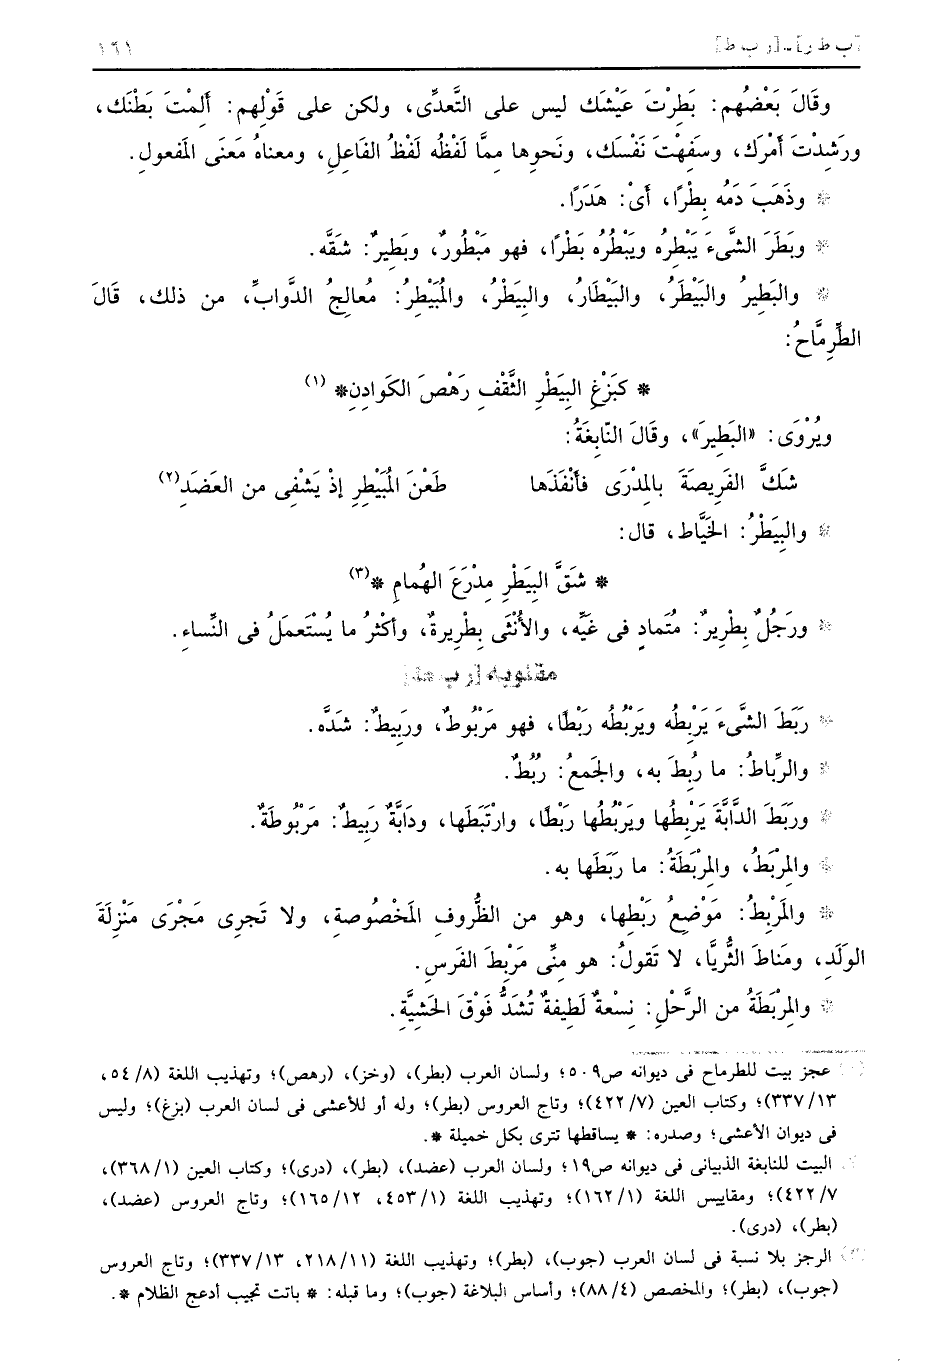 [ب ط ر] - [ر ب ط] ١٦١
وقَالَ بَعْضُهُم: بَطِرْتَ عَيْشَك ليس على التَّعدِّى، ولكن على قَوْلِهم: أَلِمْتَ بَطْنَك،
ورَشِدْتَ أَمْرَك، وسَفِهْتَ نَفْسَك، ونَحوِها مِمَّا لَفْظُه لَفْظُ الفَاعِلِ، ومعناهُ مَعنَى المَفعولِ.
* وذَهَبَ دَمُه بِطْرًا، أىْ: هَدَرًا.
* وبَطَرَ الشَّىءَ يَبْطِرُه ويَبْطُرُه بَطْرًا، فهو مَبْطُورٌ، وبَطِيرٌ: شَقَّه.
* والبَطِيرُ والبَيْطَرُ، والبَيْطَارُ، والبِيَطْرُ، والمُبَيْطِرُ: مُعالِجُ الدَّوابِّ، من ذلك، قَالَ
الطِّرِمَّاحُ:
* كبَزْغِ البِيَطْرِ الثَّقْفِ رَهْصَ الكَوادِنِ* (١)
ويُرْوَى: «البَطِيرَ»، وقَالَ النّابِغَةُ:
شَكَّ الفَرِيصَةَ بالمِدْرَى فأنْفَذَها طَعْنَ المُبَيْطِرِ إذْ يَشْفِى من العَضَدِ(٢)
* والبِيَطْرُ: الخَيَّاط، قال:
* شَقَّ البِيَطْرِ مِدْرَعَ الهُمامِ *(٣)
* ورَجُلٌ بِطْرِيرٌ: مُتَمادٍ فى غَيِّه، والأُنْثَى بِطْرِيرةٌ، وأكْثرُ ما يُسْتَعمَلُ فى النِّساءِ.
مقلوبه [ر ب ط]
* رَبَطَ الشَّىءَ يَرْبِطُه ويَرْبُطُه رَبْطًا، فهو مَرْبُوطٌ، ورَبِيطٌ: شَدَّه.
* والرِّباطُ: ما رُبِطَ به، والجَمعُ: رُبُطٌ.
* ورَبَطَ الدَّابَّةَ يَرْبِطُها ويَرْبُطُها رَبْطًا، وارْتَبَطَها، ودَابَّةٌ رَبِيطٌ: مَرْبُوطَةٌ.
* والمِرْبَطُ، والمِرْبَطَةُ: ما رَبَطَها به.
* والمَرْبِطُ: مَوْضِعُ رَبْطِها، وهو من الظُّروفِ المَخْصُوصةِ، ولا تَجرِى مَجْرَى مَنْزِلَةَ
الوَلَدِ، ومَناطَ الثُّريَّا، لا تَقولُ: هو مِنِّى مَرْبِطَ الفَرَسِ.
* والمِرْبَطَةُ من الرَّحْلِ: نِسْعةٌ لَطِيفةٌ تُشَدُّ فَوْقَ الحَشِيَّةِ.
(١) عجز بيت للطرماح فى ديوانه ص٥٠٩؛ ولسان العرب (بطر)، (وخز)، (رهص)؛ وتهذيب اللغة (٥٤/٨،
٣٣٧/١٣)؛ وكتاب العين (٤٢٢/٧)؛ وتاج العروس (بطر)؛ وله أو للأعشى فى لسان العرب (بزغ)؛ وليس
فى ديوان الأعشى؛ وصدره: * يساقطها تترى بكل خميلة *.
(٢) البيت للنابغة الذبيانى فى ديوانه ص١٩؛ ولسان العرب (عضد)، (بطر)، (درى)؛ وكتاب العين (٣٦٨/١)،
٤٢٢/٧)؛ ومقاييس اللغة (١٦٢/١)؛ وتهذيب اللغة (٤٥٣/١، ١٦٥/١٢)؛ وتاج العروس (عضد)،
(بطر)، (درى).
(٣) الرجز بلا نسبة فى لسان العرب (جوب)، (بطر)؛ وتهذيب اللغة (٢١٨/١١، ٣٣٧/١٣)؛ وتاج العروس
(جوب)، (بطر)؛ والمخصص (٨٨/٤)؛ وأساس البلاغة (جوب)؛ وما قبله: * باتت تجيب أدعج الظلام *.